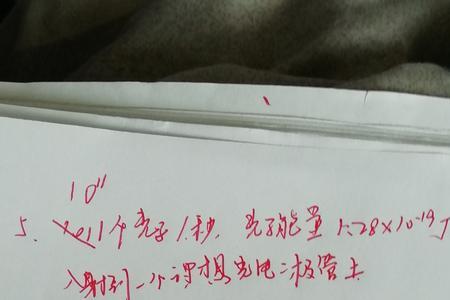 10¹¹
5. 个光子/秒, 光子能量 1.28×10⁻¹⁹J
入射到一个理想光电二极管上